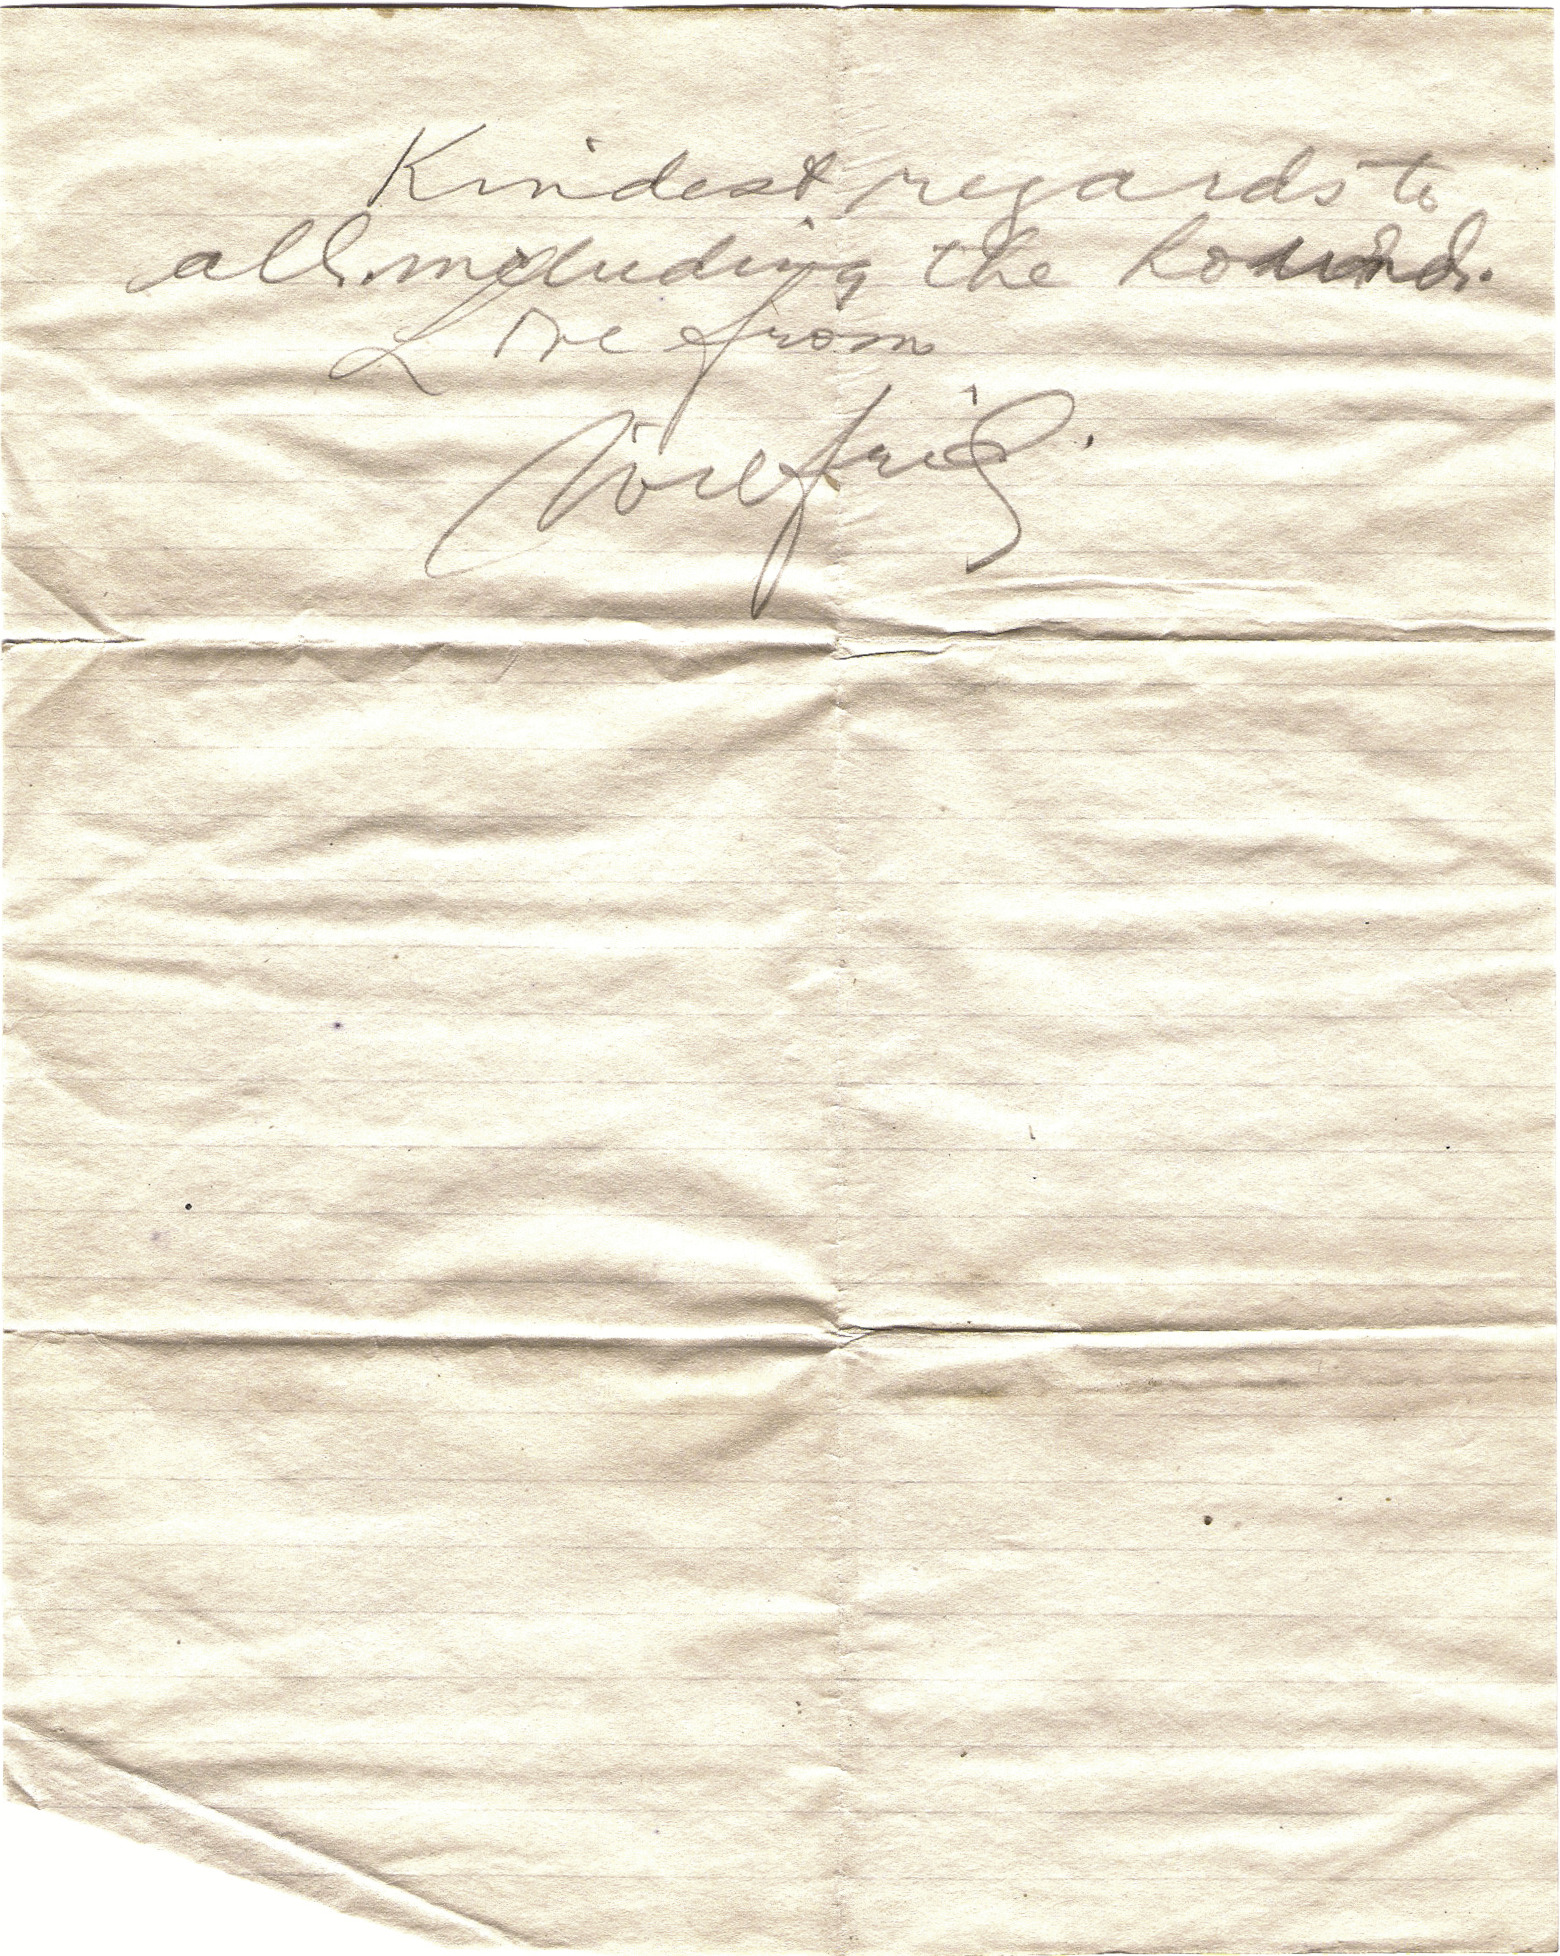 Kindest regards to
all including the hound.
Love from
Wilfrid.